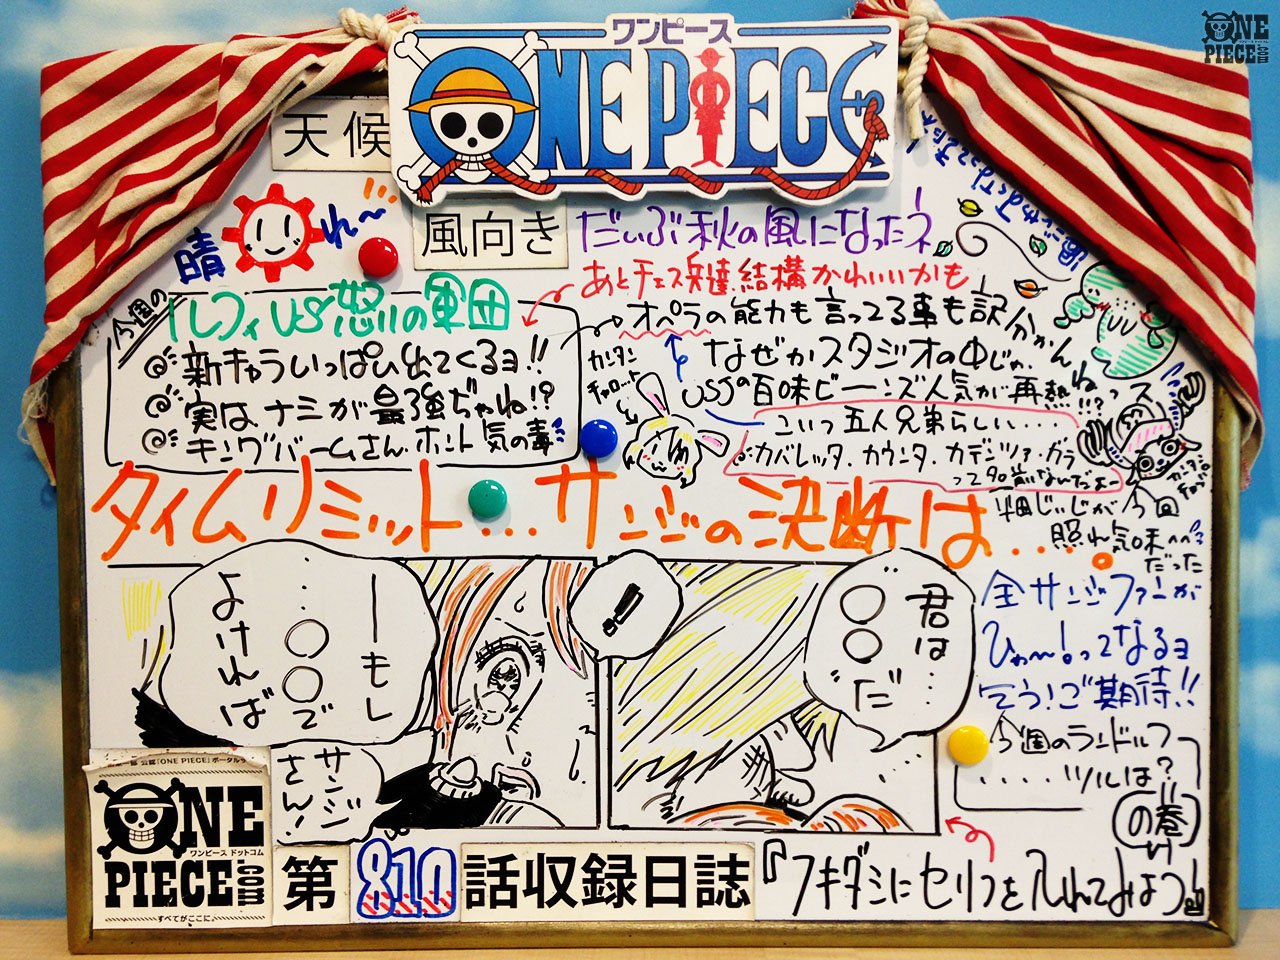 ワンピース
ONE PIECE
ONE PIECE.com
天候
晴れ〜
風向き
だいぶ秋の風になったネ
あとチェス兵達、結構かわいいかも
今週の
ルフィVS怒りの軍団
新キャラいっぱい出てくるヨ!!
実はナミが最強ぢゃね!?
キングバームさん、ホント気の毒
オペラの能力も言ってる事も訳
わかんねっス
カンタン
チャロット
なぜかスタジオの中じゃ、
USJの百味ビーンズ人気が再熱!!?
こいつ五人兄弟らしい....
カバレッタ、カウンタ、カデンツァ、ガラ
って名前なんだよー
今回
照れ気味^^
だった
タイムリミット...サンジの決断は....
全サンジファンが
ひゃ〜!ってなるヨ
そう!ご期待!!
ーもし
...〇〇で
よければ
サンジ
さん!
!!
君は...
〇〇
だ
今週のランドルフ
....ツルは?
の巻
ONE
ワンピース ドットコム
PIECE.com
すべてがここに。
第810話収録日誌
『フキダシにセリフを入れてみよう!』